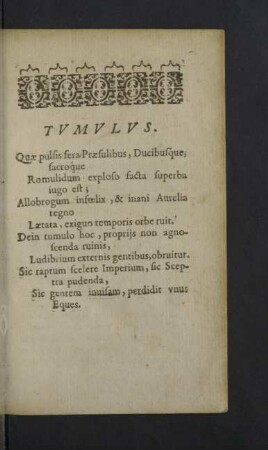 TVMVLVS.
Quæ pulsis fera Præsulibus, Ducibusque,
sacroque
Romulidum exploso facta superba
iugo est;
Allobrogum infœlix, & inani Aurelia
regno
Lætata, exiguo temporis orbe ruit.
Dein tumulo hoc, proprijs non agno-
scenda ruinis,
Ludibrium externis gentibus, obruitur.
Sic raptum scelere Imperium, sic Scep-
tra pudenda,
Sic gentem inuisam, perdidit vnus
Eques.